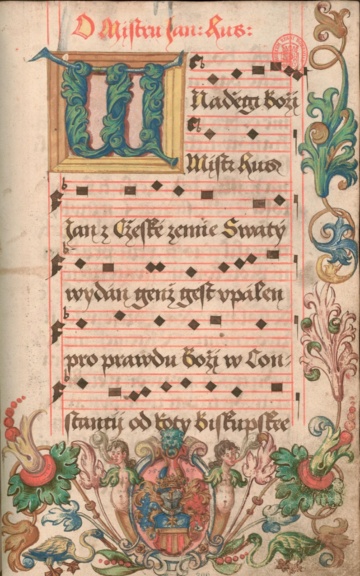 O Mistru Jan: Hus:
W Naděgi Boži
Mistr Hus
Jan z Cžeské zemie Swatý
wydán genž gest vpálen
pro prawdu Boži w Con-
stantij od roty biskupské